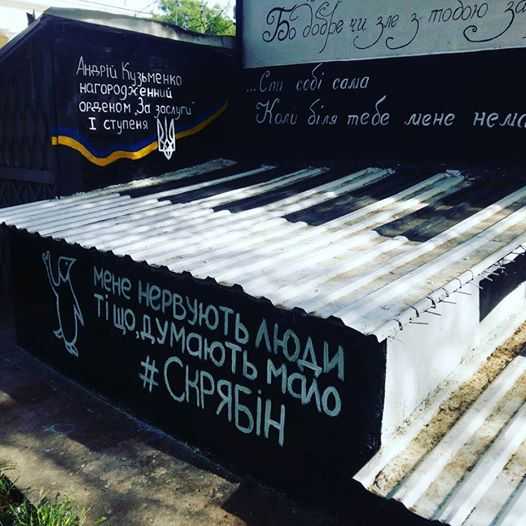 Бо добре чи зле з тобою
Андрій Кузьменко
нагороджений
орденом „За заслуги"
І ступеня
...Спи собі сама
Коли біля тебе мене нема
мене нервують люди
Ті що, думають мало
#Скрябін